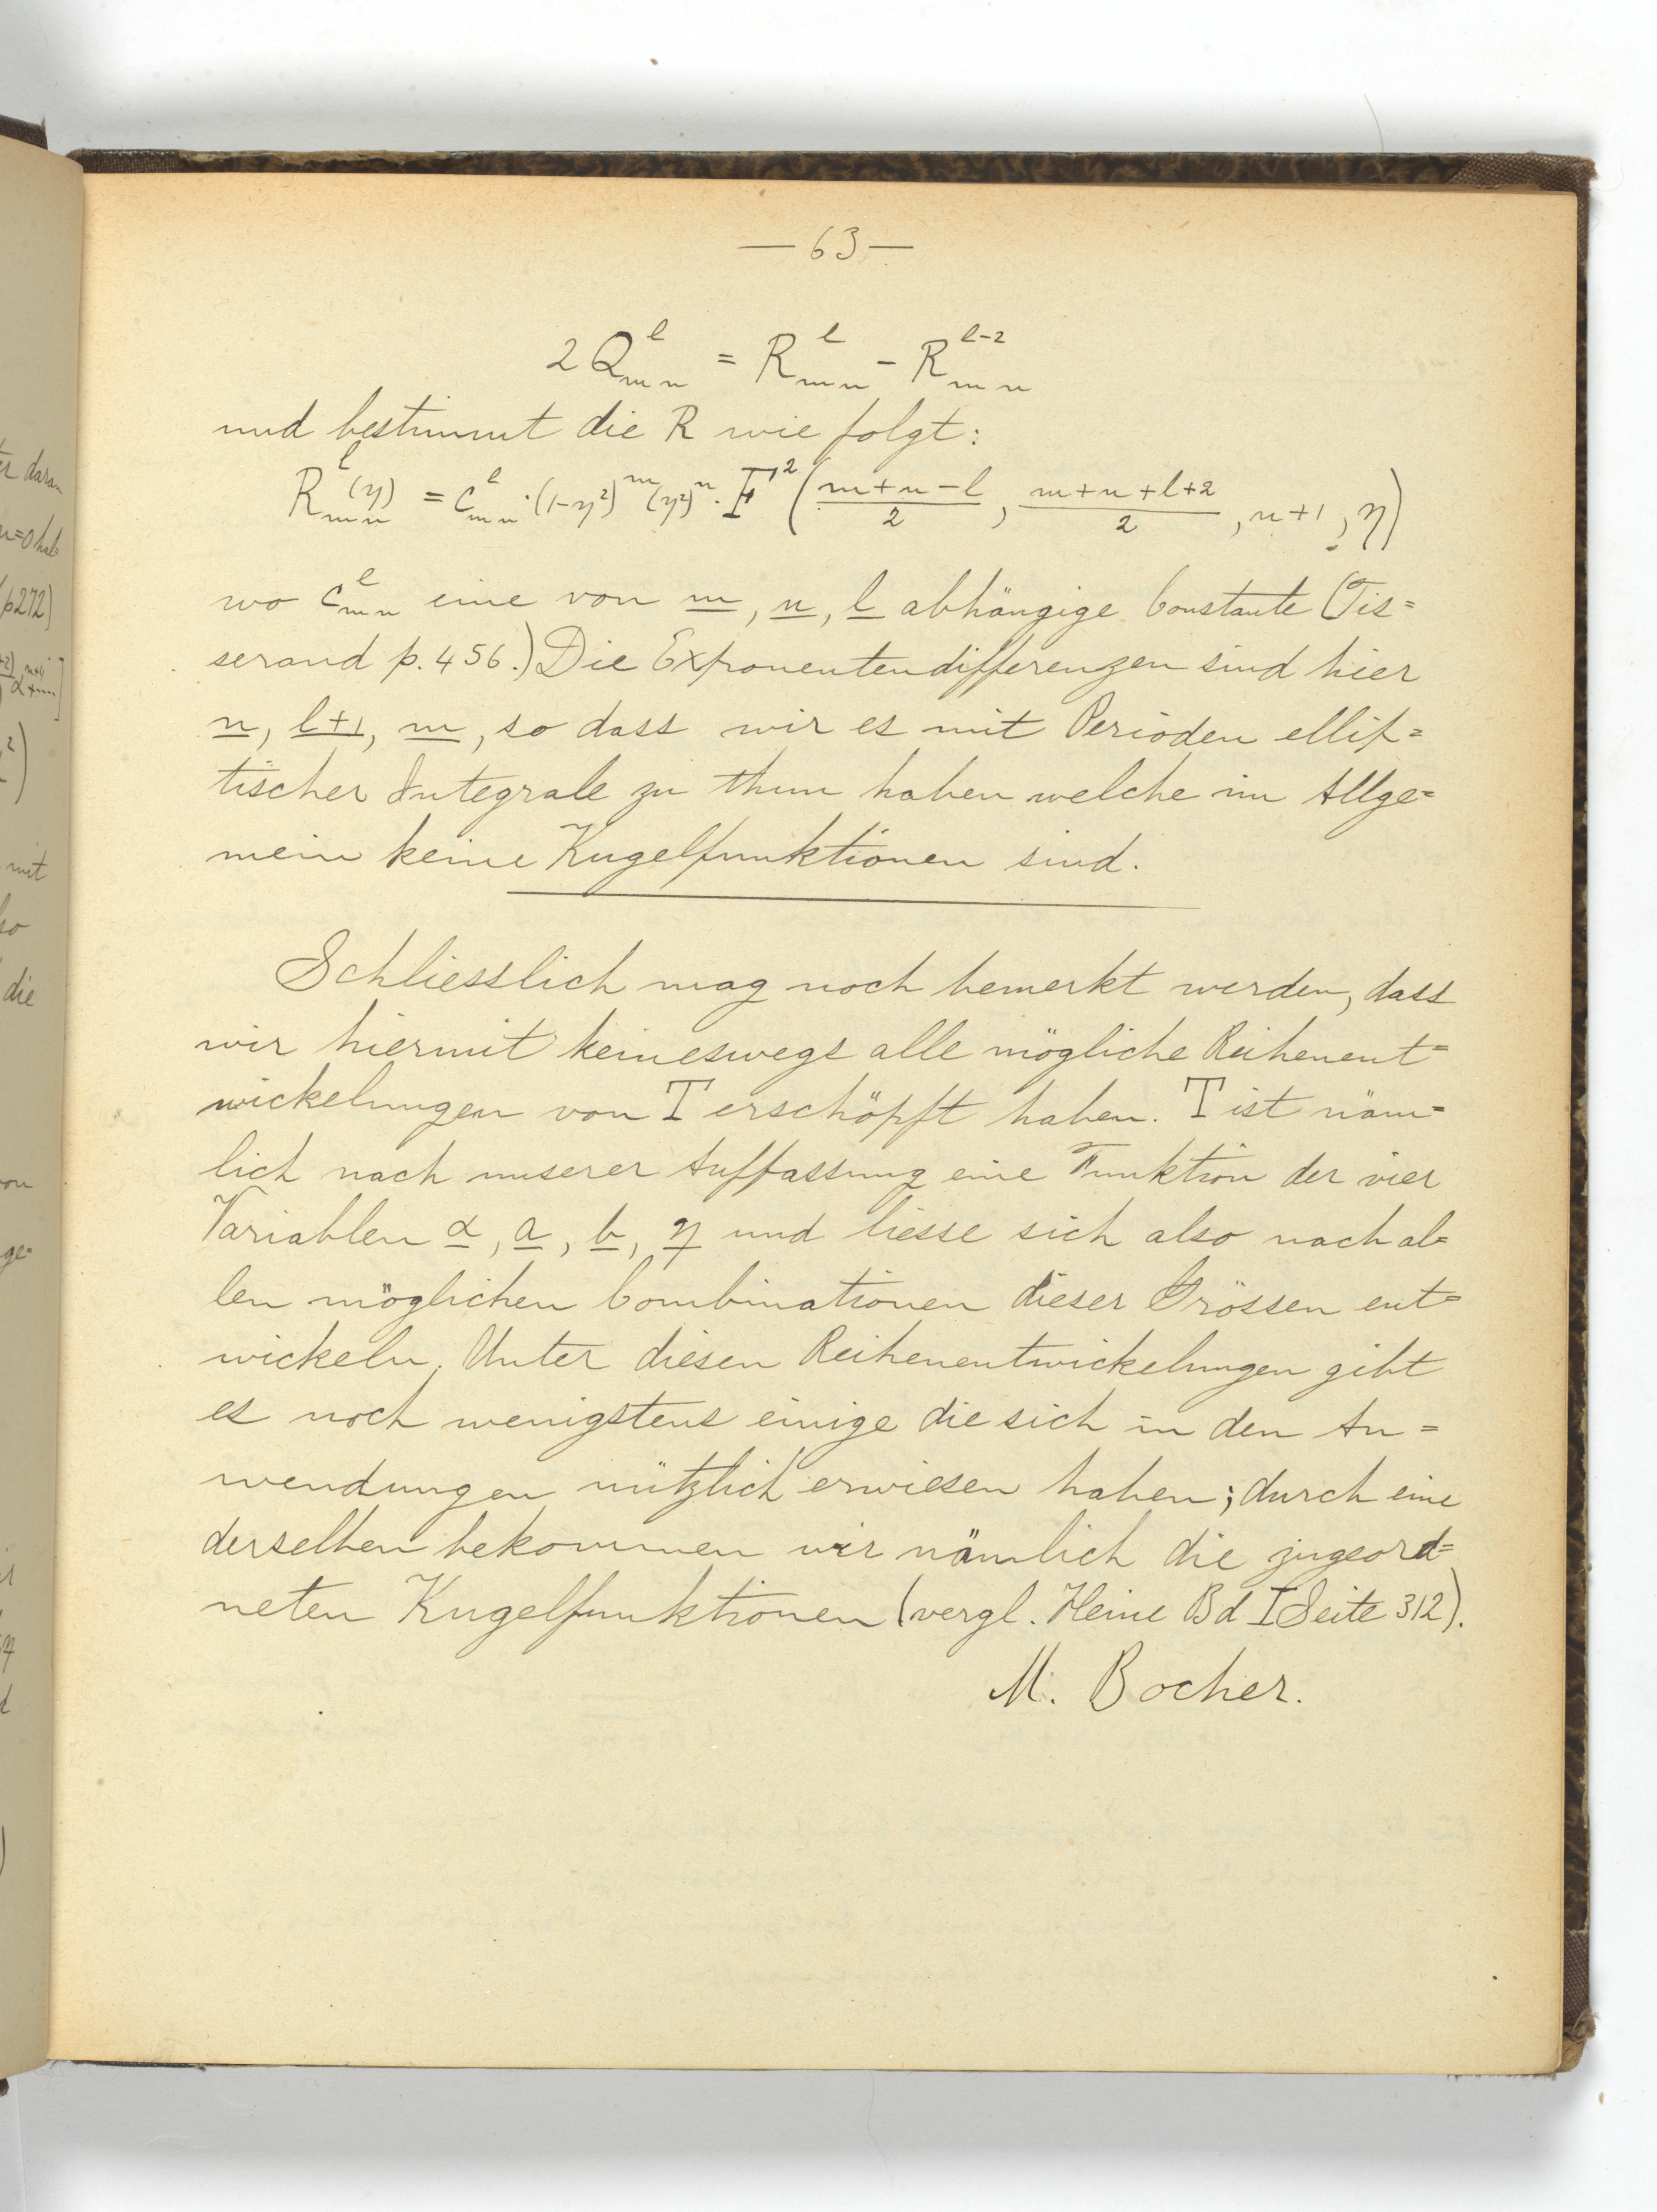 — 63 —
2 Q^l_{mn} = R^l_{mn} - R^{l-2}_{mn}
und bestimmt die R wie folgt:
R^l_{mn}(η) = c^l_{mn} · (1-η²)^m (η²)^n · F²( (m+n-l)/2 , (m+n+l+2)/2 , n+1 , η )
wo c^l_{mn} eine von m, n, l abhängige Constante (Tis=
serand p. 456.) Die Exponentendifferenzen sind hier
n, l+1, m, so dass wir es mit Perioden ellip=
tischer Integrale zu thun haben welche im Allge=
mein keine Kugelfunktionen sind.
Schliesslich mag noch bemerkt werden, dass
wir hiermit keineswegs alle mögliche Reihenent=
wickelungen von T erschöpft haben. T ist näm=
lich nach unserer Auffassung eine Funktion der vier
Variablen α, a, b, η und liesse sich also nach al=
len möglichen Combinationen dieser Grössen ent=
wickeln. Unter diesen Reihenentwickelungen gibt
es noch wenigstens einige die sich in den An=
wendungen nützlich erwiesen haben; durch eine
derselben bekommen wir nämlich die zugeord=
neten Kugelfunktionen (vergl. Heine Bd I Seite 312).
M. Bocher.